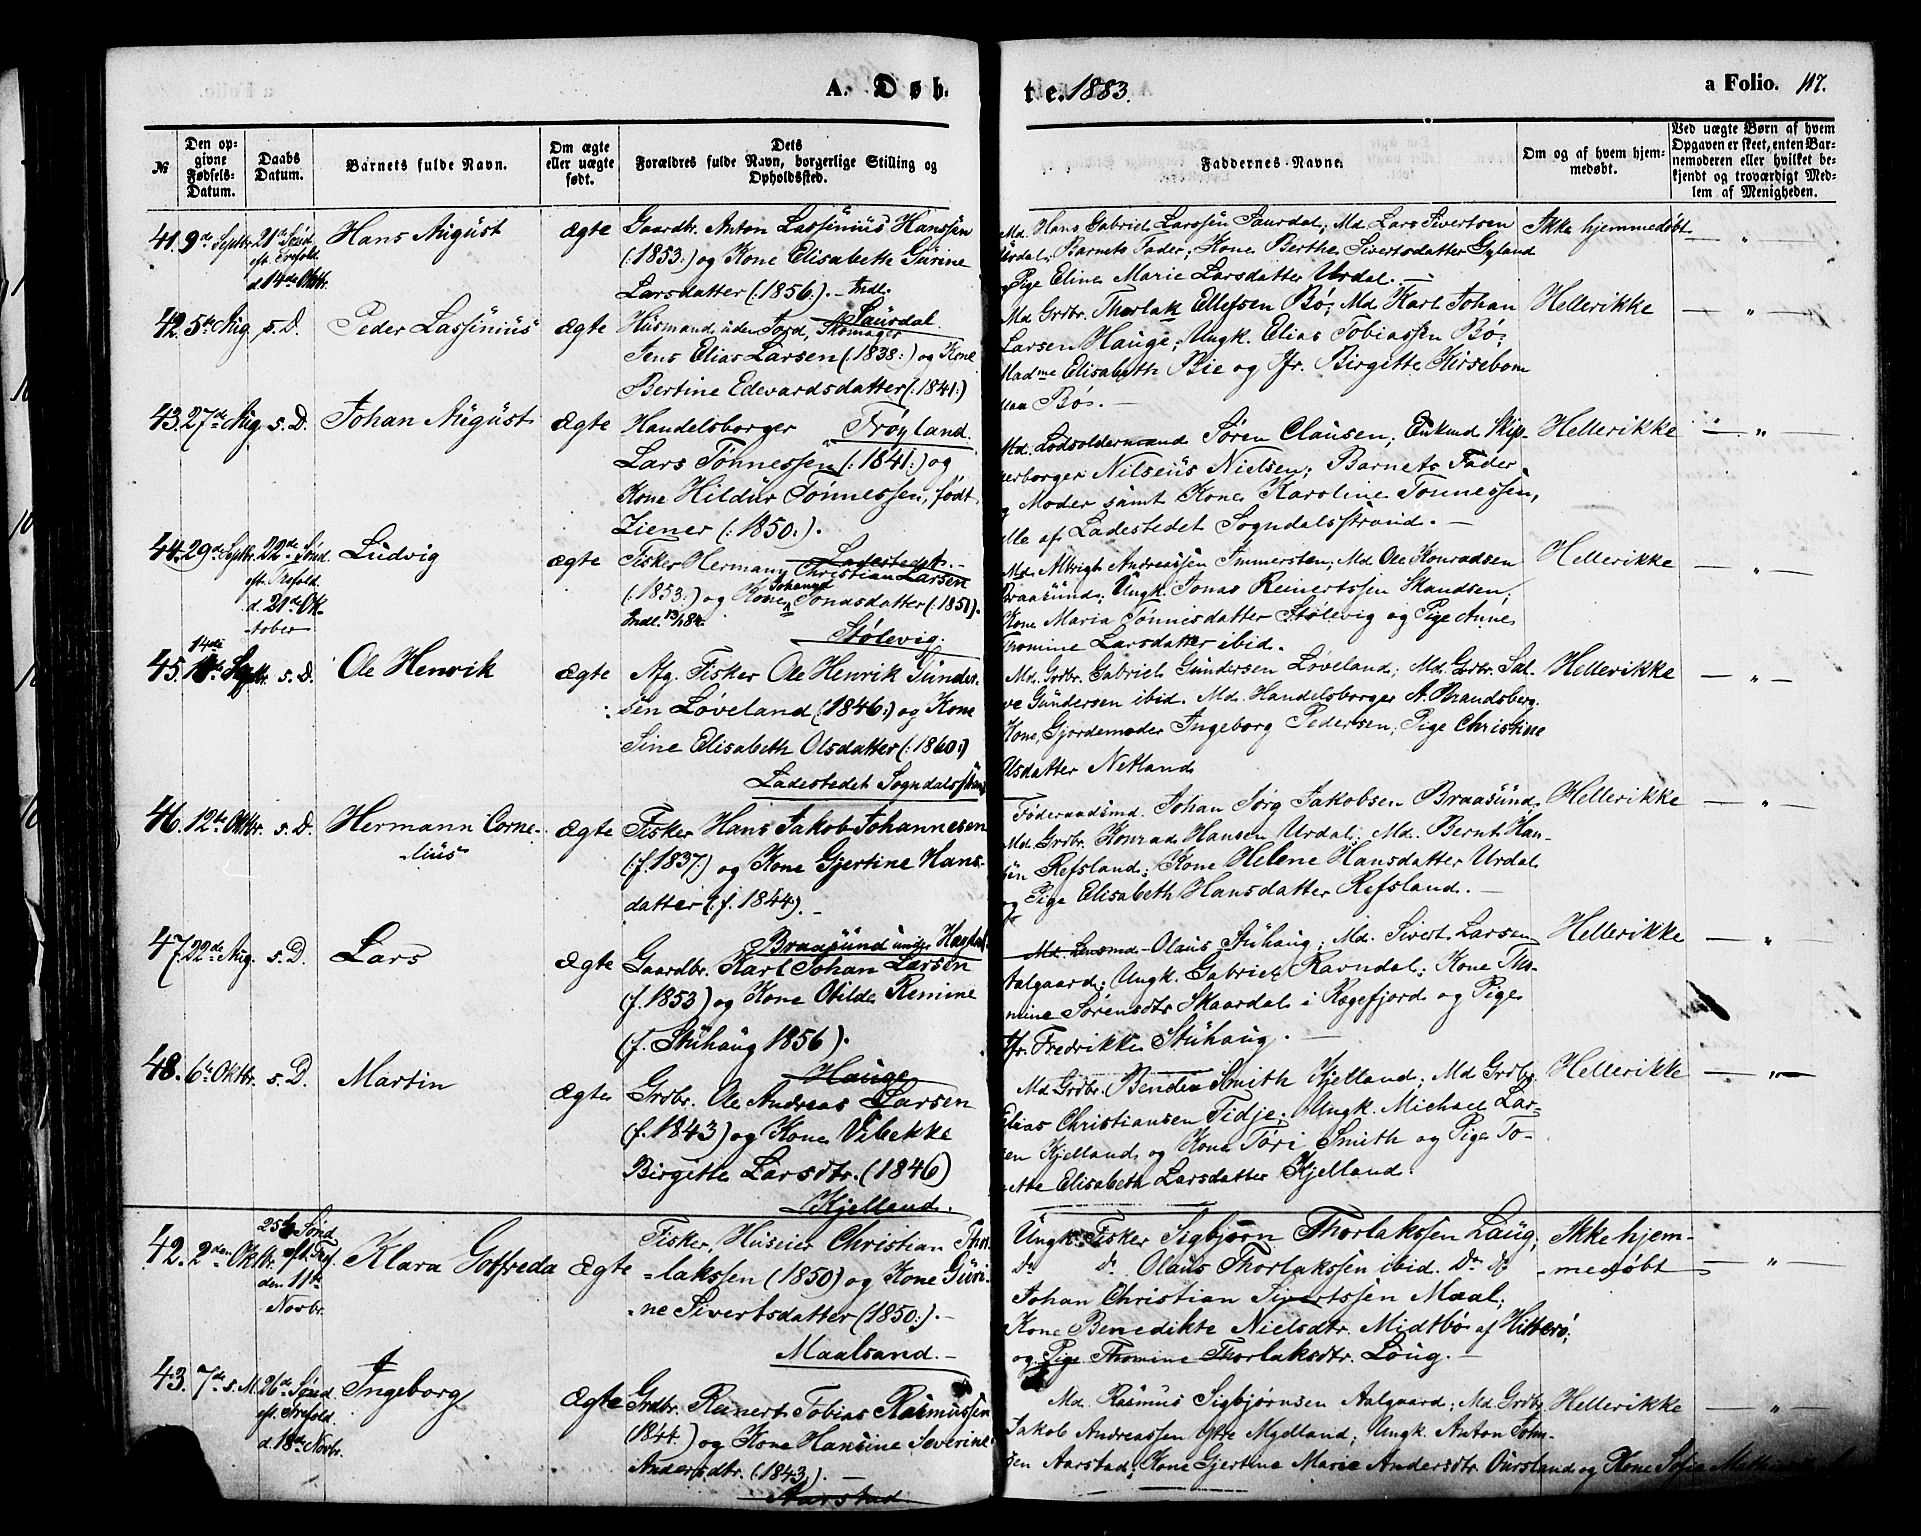 A. Døb-
te. 1883.
a Folio. 117.
№
Den op-
givne
Fødsels-
Datum.
Daabs
Datum.
Barnets fulde Navn.
Om ægte
eller uægte
født.
Dets
Forældres fulde Navn, borgerlige Stilling og
Opholdssted.
Faddernes Navne.
Om og af hvem hjem-
medøbt.
Ved uægte Børn af hvem
Opgaven er skeet, enten Bar-
nemoderen eller hvilket be-
kjendt og troværdigt Med-
lem af Menigheden.
41. 9de Septr. 21de Sønd.
eft. Trefold.
d. 14de Oktbr.
Hans August
Ægte
Gaardbr. Anton Lassenius Hanssen
(:1853:) og Kone Elisabeth Gurine
Larsdatter (:1856:). - Indl.
Saurdal.
Md. Hans Gabriel Larssen Saurdal; Md. Lars Sivertsen
Urdal; Barnets Fader; Kone Berthe Sivertsdatter Gyland
og Pige Eline Marie Larsdatter Urdal. —
Ikke hjemmedøbt
— „ —
42. 5te Aug. s. D.
Peder Lassenius
Ægte
Husmand uden Jord, Skomager
Jens Elias Larsen (:1838:) og Kone
Bertine Edevardsdatter (:1841:)
Frøyland.
Md Grdbr. Thorlak Ellefsen Bø; Md. Karl Johan
Larsen Hauge; Ungk. Elias Tobiassen Bø;
Madme Elisabeth Bie og Jfr. Birgitte Kirsebom
Bø. —
Hellerikke
— „ —
43. 27de Aug. s. D.
Johan August
Ægte
Handelsborger
Lars Tønnessen (:1841:) og
Kone Hildur Tønnessen, født
Ziener (:1850:).
Ladestedet.
Md. Lodsoldermand Søren Clausen; Enkemd. Skip-
perborger Nilseus Nielsen; Barnets Fader
og Moder samt Kone Karoline Tønnessen,
alle af Ladestedet Sogndalsstrand. —
Hellerikke
— „ —
44. 29de Septr. 22de Sønd.
eft. Trefold.
d. 21de Ok-
tober
Ludvig
Ægte
Fisker Hermann Christian Larsen
(:1853:) og Kone Johanna Jonasdatter (:1851).
Indl. 13/1 84.
Stølevig.
Md. Albrigt Andreassen Immersten; Md. Ole Konradsen
Braasund; Ungk. Jonas Reinertssen Skandsen;
Kone Maria Tønnisdatter Stølevig og Pige Anne
Thomine Larsdatter ibid.
Hellerikke
— „ —
45. 14de Septr. s. D.
Ole Henrik
Ægte
Afg. Fisker Ole Henrik Gunder-
sen Løveland (1846:) og Kone
Sine Elisabeth Olsdatter (:1860:)
Ladestedet Sogndalsstrand
Md. Grdbr. Gabriel Gundersen Løveland; Md. Grdbr. Sal-
ve Gundersen ibid. Md. Handelsborger A. Brandsberg.
Kone, Gjordemoder Ingeborg Pedersen; Pige Christine
Olsdatter Netland
Hellerikke
— „ —
46. 12te Oktbr. s. D.
Hermann Corne-
lius
Ægte
Fisker Hans Jakob Johannesen
(:f. 1837.) og Kone Gjertine Hans-
datter (:f. 1844). —
Braasund under Hagestad.
Føderaadsmd. Johan Jørg Jakobsen Braasund.
Md. Grdbr. Konrad Hansen Urdal; Md. Bernt Han-
sen Refsland; Kone Helene Hansdatter Urdal
og Pige Elisabeth Hansdatter Refsland. —
Hellerikke
— „ —
47. 22de Aug. s. D.
Lars
Ægte
Gaardbr. Karl Johan Larsen
(f. 1853) og Kone Otilde Remine
(f. Stuhaug 1856).
Hauge
Md. Lensmd. Olaus Stuhaug; Md. Sivert Larsen
Aalgaard; Ungk. Gabriel Ravndal; Kone Tho-
mine Sørensdtr. Skaardal i Rægefjord og Pige
Jfr. Fredrikke Stuhaug. —
Hellerikke
— „ —
48. 6te Oktbr. s. D.
Martin
Ægte
Grdbr. Ole Andreas Larsen
(f. 1843) og Kone Vibekke
Birgitte Larsdtr. (1846)
Kjelland.
Md Grdbr. Bendix Smith Kjelland; Md Grdbr.
Elias Christiansen Tidje; Ungk. Michael Lar-
sen Kjelland og Kone Tøri Smith og Pige To-
nette Elisabeth Larsdatter Kjelland.
Hellerikke
— „ —
42. 2den Oktbr. 25de Sønd
eft. Tref.
den 11te
Novbr.
Klara Gotfreda
Ægte
Fisker, Huseier Christian Thor-
lakssen (1850) og Kone Guri-
ne Sivertsdatter (1850:). —
Maalsand. —
Ungk. Fisker Sigbjørn Thorlakssen Laug;
Do Do Olaus Thorlakssen ibid. Do Do
Johan Christian Sivertssen Maal;
Kone Benedikte Nielsdtr. Midtbø af Hitterø;
og Pige Thomine Thorlaksdtr. Loug. —
Ikke hjem-
medøbt
— „ —
43. 7de s. M. 26de Sønd.
eft. Trefold.
d. 18de Novbr.
Ingeborg
Ægte
Grdbr. Reinert Tobias Rasmussen
(1844.) og Kone Hansine Severine
Andersdtr. (:1843.) —
Aarstad
Md. Rasmus Sigbjørnsen Aalgaard; Md. Grdbr.
Jakob Andreassen Ytre Mydland; Ungk. Anton John-
sen Aarstad; Kone Gjertine Marie Andersdtr. Oursland og Kone Sofie
Hellerikke
— „ —